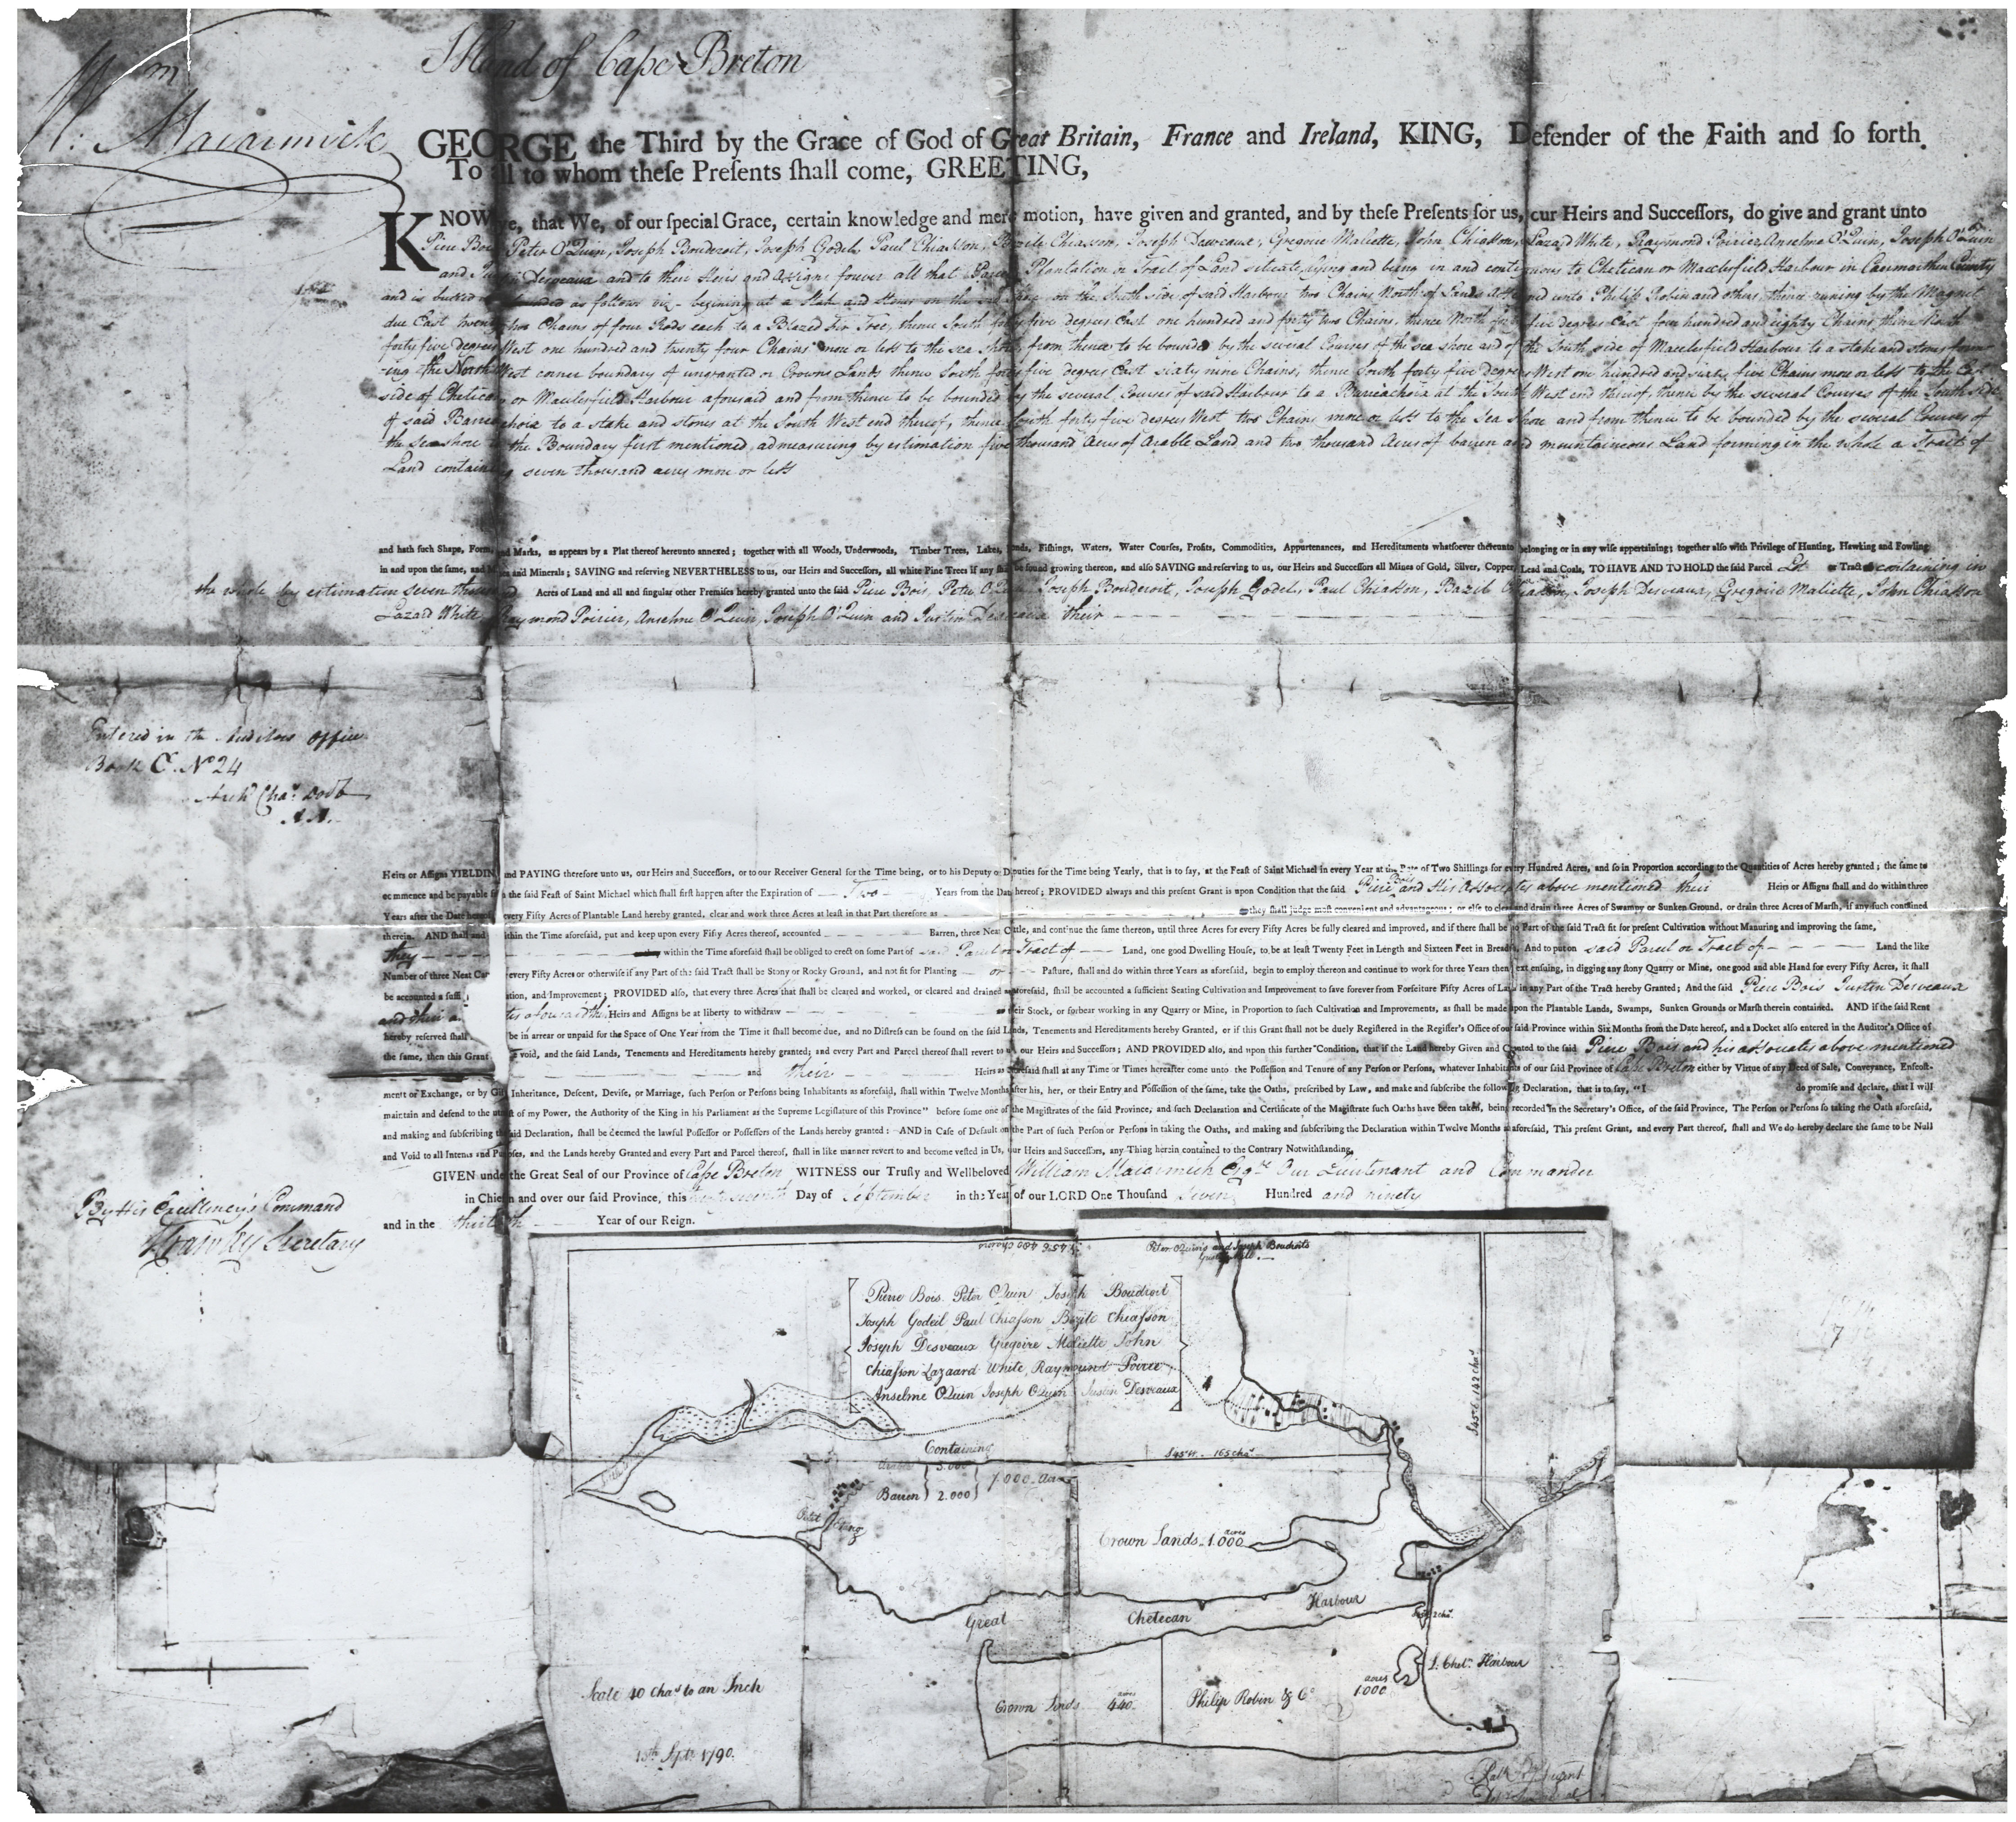 Island of Cape Breton
Wm
Macarmick
GEORGE the Third by the Grace of God of Great Britain, France and Ireland, KING, Defender of the Faith and ſo forth.
To all to whom theſe Preſents ſhall come, GREETING,
KNOW ye, that We, of our ſpecial Grace, certain knowledge and mere motion, have given and granted, and by theſe Preſents for us, our Heirs and Succeſſors, do give and grant unto
Piere Bois Peter O'Quin, Joseph Bouderoit, Joseph Godel, Paul Chiasson, Bazile Chiasson, Joseph Desveaux, Gregoire Maliette, John Chiasson, Lazard White, Raymond Poirier, Anselme O'Quin, Joseph O'Quin
and Justin Desveaux and to there Heirs and Assigns forever all that Parcel Plantation or Tract of Land situate, lying and being in and contiguous to Chetican or Macclesfield Harbour in Caermarthen County
and is butted and bounded as follows viz - begining at a Stake and Stones on the Sea Shore on the South side of said Harbour two Chains North of Lands and unto Philip Robin and others, thence runing by the Magnet
due East twenty two Chains of four Rods each to a Blazed Fir Tree, thence South forty five degrees East one hundred and forty two Chains, thence North forty five degrees East four hundred and eighty Chains thence North
forty five degrees West one hundred and twenty four Chains more or less to the sea Shore, from thence to be bounded by the several Courses of the sea shore and of the South side of Macclesfield Harbour to a stake and stones form-
ing the North West corner boundary of ungranted or Crowns Lands thence South forty five degrees East sixty nine Chains, thence South forty five degrees West one hundred and sixty five Chains more or less to the East
side of Chetican or Macclesfield Harbour aforesaid and from thence to be bounded by the several Courses of said Harbour to a Barrachoia at the South West end thereof, thence by the several Courses of the South side
of said Barrachoia to a stake and stones at the South West end thereof, thence South forty five degrees West two Chains more or less to the Sea Shore and from thence to be bounded by the several Courses of
the sea shore to the Boundary first mentioned, admeasuring by estimation five thousand Acres of Arable Land and two thousand Acres of barren and mountaineous Land forming in the whole a Tract of
Land containing seven thousand acres more or less
and hath ſuch Shape, Form, and Marks, as appears by a Plat thereof hereunto annexed; together with all Woods, Underwoods, Timber Trees, Lakes, Ponds, Fiſhings, Waters, Water Courſes, Profits, Commodities, Appurtenances, and Hereditaments whatſoever thereunto belonging or in any wiſe appertaining; together alſo with Privilege of Hunting, Hawking and Fowling
in and upon the ſame, and Mines and Minerals; SAVING and reſerving NEVERTHELESS to us, our Heirs and Succeſſors, all white Pine Trees if any ſhall be found growing thereon, and alſo SAVING and reſerving to us, our Heirs and Succeſſors all Mines of Gold, Silver, Copper, Lead and Coals, TO HAVE AND TO HOLD the ſaid Parcel or Tract containing in
the whole by estimation seven thousand Acres of Land and all and ſingular other Premiſes hereby granted unto the ſaid Piere Bois, Peter O'Quin, Joseph Bouderoit, Joseph Godel, Paul Chiasson, Bazil Chiasson, Joseph Desveaux, Gregoire Maliette, John Chiasson
Lazard White, Raymond Poirier, Anselme O'Quin, Joseph O'Quin and Justin Desveaux their
Entered in the Auditors Office
Book C. No 24
Archd Chas Dodd
A.A.
Heirs or Aſſigns YIELDING and PAYING therefore unto us, our Heirs and Succeſſors, or to our Receiver General for the Time being, or to his Deputy or Deputies for the Time being Yearly, that is to ſay, at the Feaſt of Saint Michael in every Year at the Rate of Two Shillings for every Hundred Acres, and ſo in Proportion according to the Quantities of Acres hereby granted; the ſame to
commence and be payable from the ſaid Feaſt of Saint Michael which ſhall firſt happen after the Expiration of Two Years from the Date hereof; PROVIDED always and this preſent Grant is upon Condition that the ſaid Piere Bois and His Associates above mentioned their Heirs or Aſſigns ſhall and do within three
Years after the Date hereof, every Fifty Acres of Plantable Land hereby granted, clear and work three Acres at leaſt in that Part therefore as they ſhall judge moſt convenient and advantageous; or elſe to clear and drain three Acres of Swampy or Sunken Ground, or drain three Acres of Marſh, if any ſuch contained
therein. AND ſhall and within the Time aforeſaid, put and keep upon every Fifty Acres thereof, accounted Barren, three Neat Cattle, and continue the ſame thereon, until three Acres for every Fifty Acres be fully cleared and improved, and if there ſhall be no Part of the ſaid Tract fit for preſent Cultivation without Manuring and improving the ſame,
they within the Time aforeſaid ſhall be obliged to erect on ſome Part of said Parcel or Tract of Land, one good Dwelling Houſe, to be at leaſt Twenty Feet in Length and Sixteen Feet in Breadth, And to put on said Parcel or Tract of Land the like
Number of three Neat Cat every Fifty Acres or otherwiſe if any Part of the ſaid Tract ſhall be Stony or Rocky Ground, and not fit for Planting or Paſture, ſhall and do within three Years as aforeſaid, begin to employ thereon and continue to work for three years then next enſuing, in digging any ſtony Quarry or Mine, one good and able Hand for every Fifty Acres, it ſhall
be accounted a ſuffi ation, and Improvement; PROVIDED alſo, that every three Acres that ſhall be cleared and worked, or cleared and drained as aforeſaid, ſhall be accounted a ſufficient Seating Cultivation and Improvement to ſave forever from Forfeiture Fifty Acres of Land in any Part of the Tract hereby Granted; And the ſaid Piere Bois Justin Desveaux
and their a tes aforesaid their Heirs and Aſſigns be at liberty to withdraw their Stock, or forbear working in any Quarry or Mine, in Proportion to ſuch Cultivation and Improvements, as ſhall be made upon the Plantable Lands, Swamps, Sunken Grounds or Marſh therein contained. AND if the ſaid Rent
hereby reſerved ſhall be in arrear or unpaid for the Space of One Year from the Time it ſhall become due, and no Diſtreſs can be found on the ſaid Lands, Tenements and Hereditaments hereby Granted, or if this Grant ſhall not be duely Regiſtered in the Regiſter's Office of our ſaid Province within Six Months from the Date hereof, and a Docket alſo entered in the Auditor's Office of
the ſame, then this Grant void, and the ſaid Lands, Tenements and Hereditaments hereby granted; and every Part and Parcel thereof ſhall revert to us our Heirs and Succeſſors; AND PROVIDED alſo, and upon this further Condition, that if the Land hereby Given and Granted to the ſaid Piere Bois and his associates above mentioned
and their Heirs as aforeſaid ſhall at any Time or Times hereafter come unto the Poſſeſſion and Tenure of any Perſon or Perſons, whatever Inhabitants of our ſaid Province of Cape Breton either by Virtue of any Deed of Sale, Conveyance, Enfeoff-
ment or Exchange, or by Gift Inheritance, Deſcent, Deviſe, or Marriage, ſuch Perſon or Perſons being Inhabitants as aforeſaid, ſhall within Twelve Months after his, her, or their Entry and Poſſeſſion of the ſame, take the Oaths, preſcribed by Law, and make and ſubſcribe the following Declaration, that is to ſay, "I do promiſe and declare, that I will
maintain and defend to the utmoſt of my Power, the Authority of the King in his Parliament as the Supreme Legiſlature of this Province" before ſome one of the Magiſtrates of the ſaid Province, and ſuch Declaration and Certificate of the Magiſtrate ſuch Oaths have been taken, being recorded in the Secretary's Office, of the ſaid Province, The Perſon or Perſons ſo taking the Oath aforeſaid,
and making and ſubſcribing the ſaid Declaration, ſhall be deemed the lawful Poſſeſſor or Poſſeſſors of the Lands hereby granted: AND in Caſe of Default on the Part of ſuch Perſon or Perſons in taking the Oaths, and making and ſubſcribing the Declaration within Twelve Months as aforeſaid, This preſent Grant, and every Part thereof, ſhall and We do hereby declare the ſame to be Null
and Void to all Intents and Purpoſes, and the Lands hereby Granted and every Part and Parcel thereof, ſhall in like manner revert to and become veſted in Us, our Heirs and Succeſſors, any Thing herein contained to the Contrary Notwithſtanding.
GIVEN under the Great Seal of our Province of Cape Breton WITNESS our Truſty and Wellbeloved William Macarmick Esqre Our Lieutenant and Commander
in Chief in and over our ſaid Province, this Day of September in the Year of our LORD One Thouſand Seven Hundred and ninety
and in the thirtieth Year of our Reign.
By His Excellency's Command
Crawley Secretary
S 45 E 480 Chains
Peter Quins and Joseph Boudroits
Pierre Bois. Peter OQuin Joseph Boudroit
Joseph Godeil Paul Chiaſson Bazile Chiaſson
Joseph Desveaux Gregoire Maliette John
Chiaſson Lazaard White Raymound Poirer
Anselme OQuin Joseph OQuin Justin Desveaux
Containing
Arable 5.000
Barren 2.000
7.000 Acres
S 45 W. 165 chas
S 45 E. 142 chas
Petit Cheting
Crown Lands 1.000 acres
Great Chetecan Harbour
2 chs.
L. Chetn. Harbour
Crown Lands 440 acres
Philip Robin & Co
acres 1000
Scale 40 Chas to an Inch
15th Sptr 1790.
7